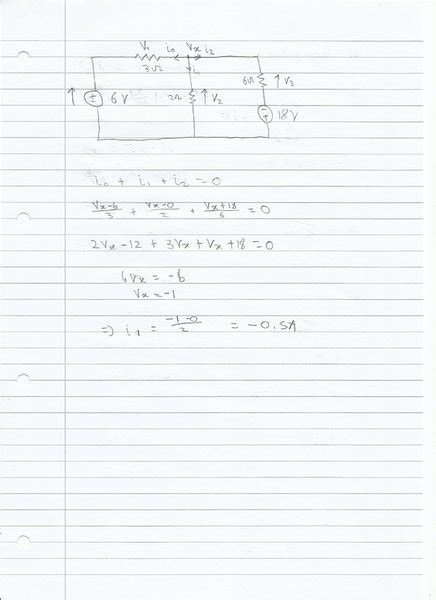 V₁ i₀ Vx i₂
3Ω i₁
6Ω V₃
± 6V 2Ω V₂
18V
i₀ + i₁ + i₂ = 0
Vx-6/3 + Vx-0/2 + Vx+18/6 = 0
2Vx-12 + 3Vx+Vx+18=0
6Vx = -6
Vx = -1
=> i₁ = -1-0/2 = -0.5A